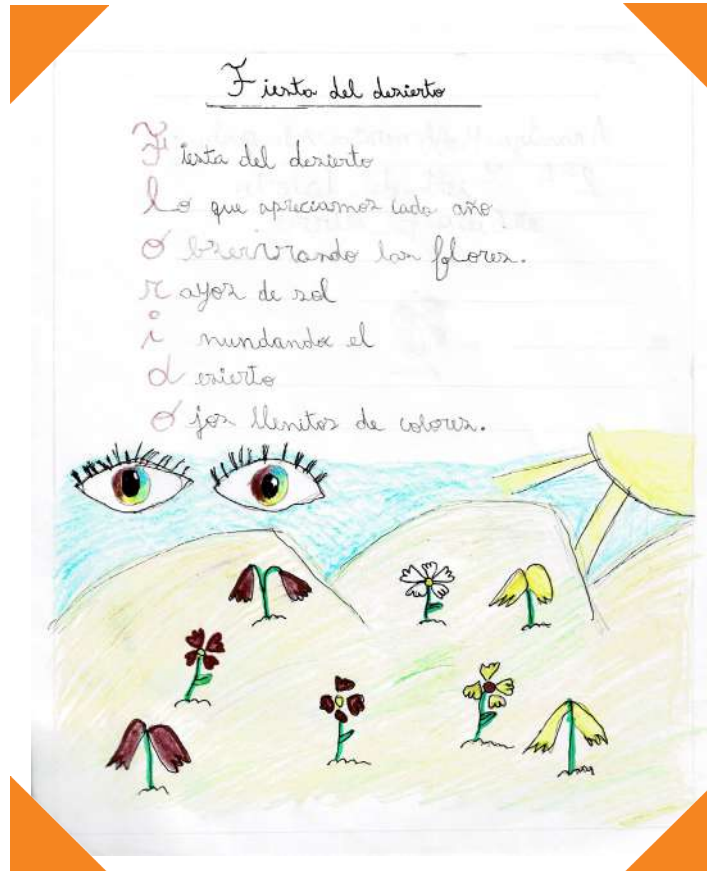 Fiesta del desierto
Fiesta del desierto
lo que apreciamos cada año
observando las flores.
rayos de sol
inundando el
desierto
ojos llenitos de colores.